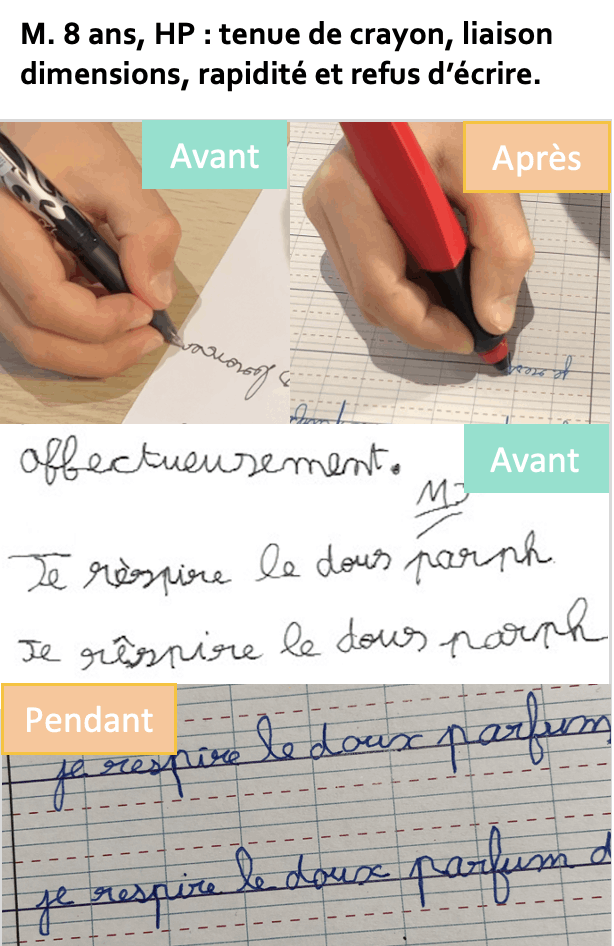 M. 8 ans, HP : tenue de crayon, liaison
dimensions, rapidité et refus d'écrire.
Avant
Après
affectueusement.
Avant
MJ
Je rèspire le dous parph
Je rêspire le dous parph
Pendant
je respire le doux parfum
je respire le doux parfum d